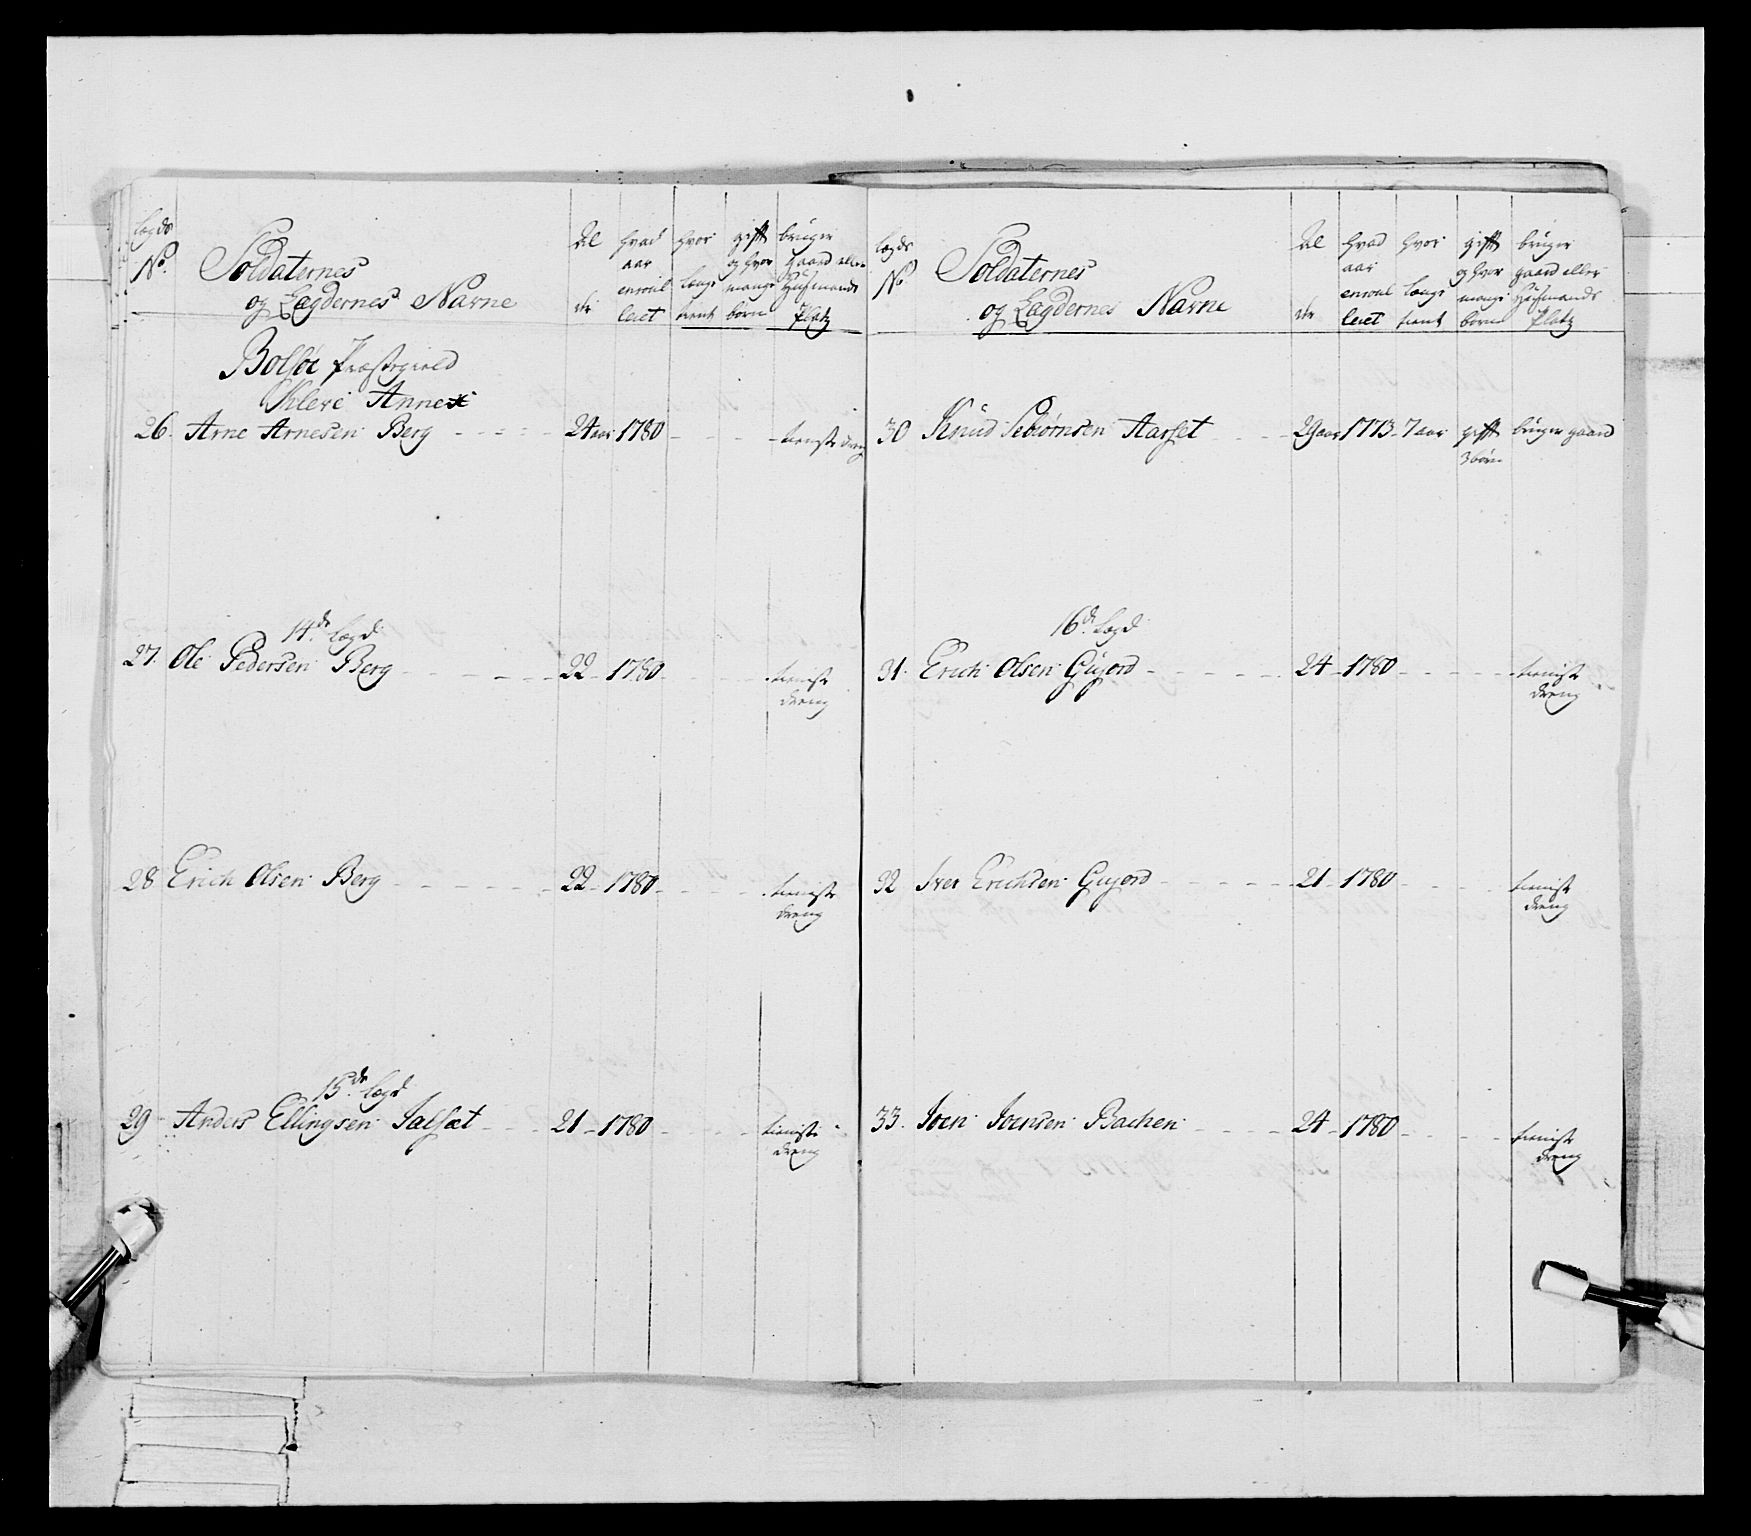 Lægds No. Soldaternes og Lægdernes Navne Al der hvad aar enroul leret hvor længe tient gifft og hvor mange børn bruger gaard eller Husmands Platz
Bolsöe Præstegield
Kleve Annex
26. Arne Arnesen Berg 24 aar 1780 tieniste dreng
14de Lægd
27. Ole Pedersen Berg 22 1780 tieniste dreng
28 Erich Olsen Berg 22 1780 tieniste dreng
15de Lægd
29 Anders Ellingsen Salsæt 21 1780 tieniste dreng
Lægds No. Soldaternes og Lægdernes Navne Al der hvad aar enroul leret hvor længe tient gifft og hvor mange børn bruger gaard eller Husmands Platz
30 Knud Sebiørnsen Aarset 29 aar 1773 7 aar gifft 3 børn bruger gaard
16de Lægd
31. Erich Olsen Gujord 24 1780 tieniste dreng
32 Iver Erichsen Gujord 21 1780 tieniste dreng
33. Joen Joensen Bachen 24 1780 tieniste dreng